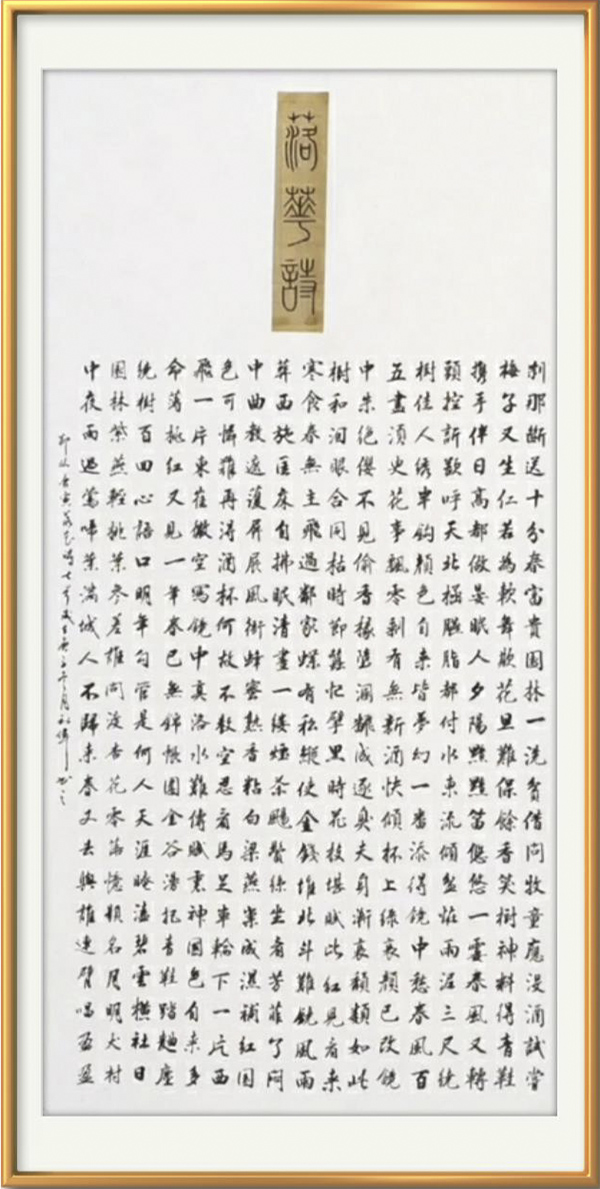 落華詩
刹那斷送十分春富貴園林一洗貧借問牧童應沒酒試嘗
梅子又生仁若為軟舞欺花旦難保餘香笑樹神料得青鞋
攜手伴日高都做晏眠人夕陽黯黯笛悠悠一霎春風又轉
頭控訴欲呼天北極胭脂都付水東流傾盆怪雨泥三尺繞
樹佳人绣半鈎顏色自來皆夢幻一番添得鏡中愁春風百
五盡須臾花事飄零剩有無新酒快傾杯上綠衰顏已改鏡
中朱絕纓不見偷香掾墮溷翻成逐臭夫身漸衰頹類如此
樹和淚眼合同枯時節籬忙擘黑時花枝堪賦此紅兒看來
寒食春無主飛過鄰家蝶有私縱使金錢堆北斗難饒風雨
葬西施匡床自拂眠清晝一縷煙茶颺鬢絲坐看芳菲了悶
中曲教遮護屏展風銜蜂蜜熟香粘白梁燕巢成濕補紅國
色可憐難再得酒杯何故不教空忍看馬足車輪下一片西
飛一片東崔徽空寫鏡中真洛水難傳賦裏神國色自來多
命薄桃紅又見一年春已無錦帳圍金谷漫把青鞋踏麴塵
繞樹百回心語口明年勾管是何人天涯晻溘碧雲橫社日
園林紫燕輕桃葉參差誰問渡杏花零落憶題名月明犬村
中夜雨過鶯啼葉滿城人不歸來春又去與誰連臂唱盈盈
落花詩七首